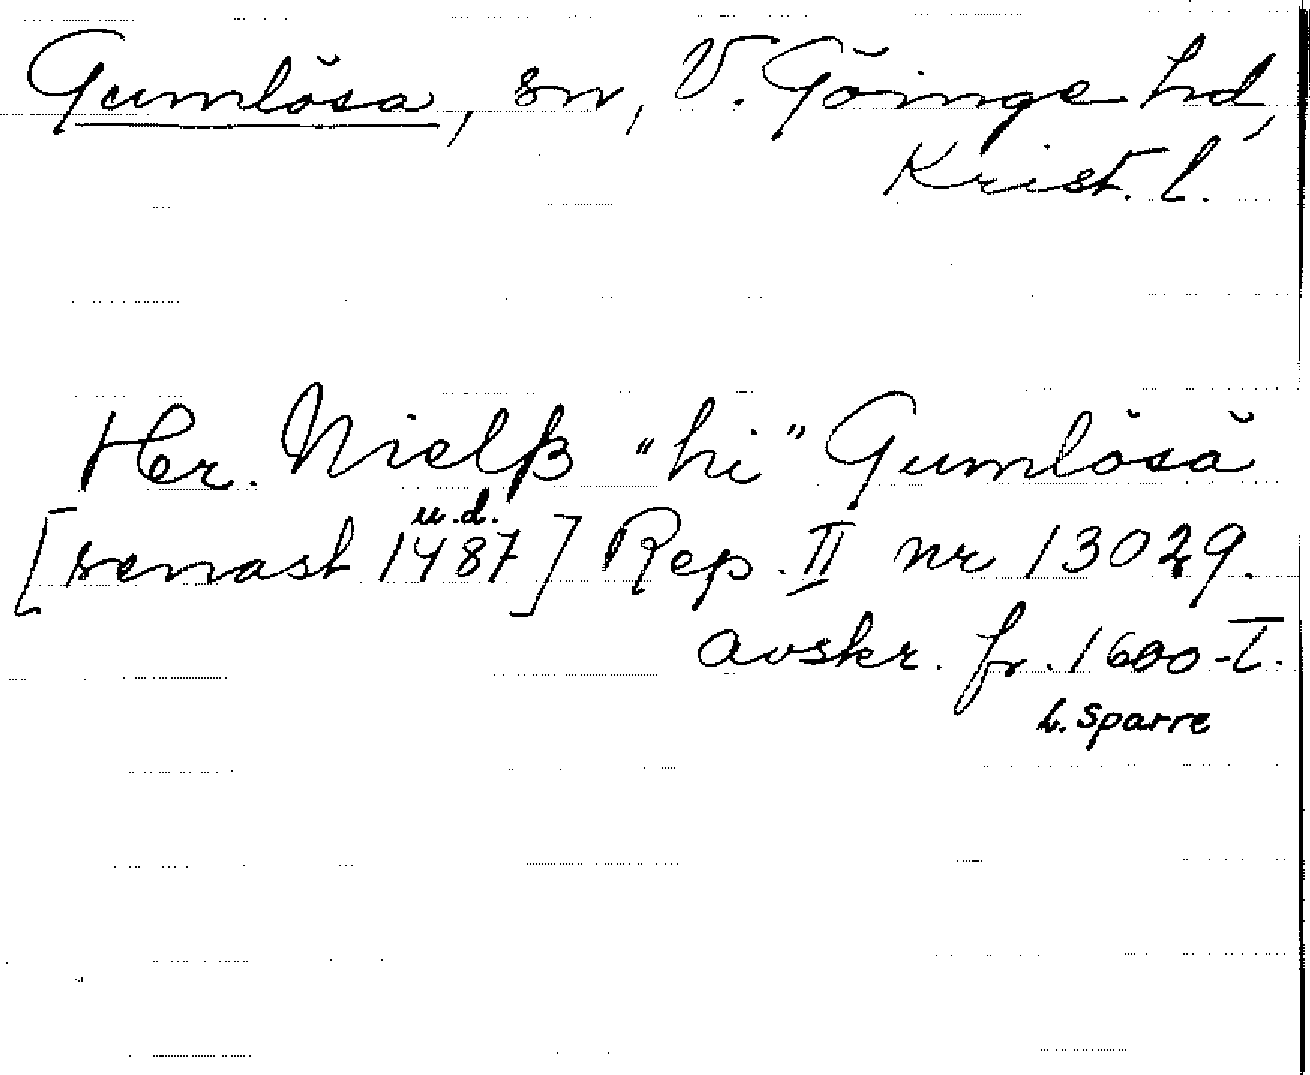 Gumlösa, sn, V. Göinge hd,
Krist. l.
Hr. Nielß "hi" Gumlösä
u.d.
[senast 1487] Rep. II nr 13029.
avskr. fr. 1600-T.
L. Sparre